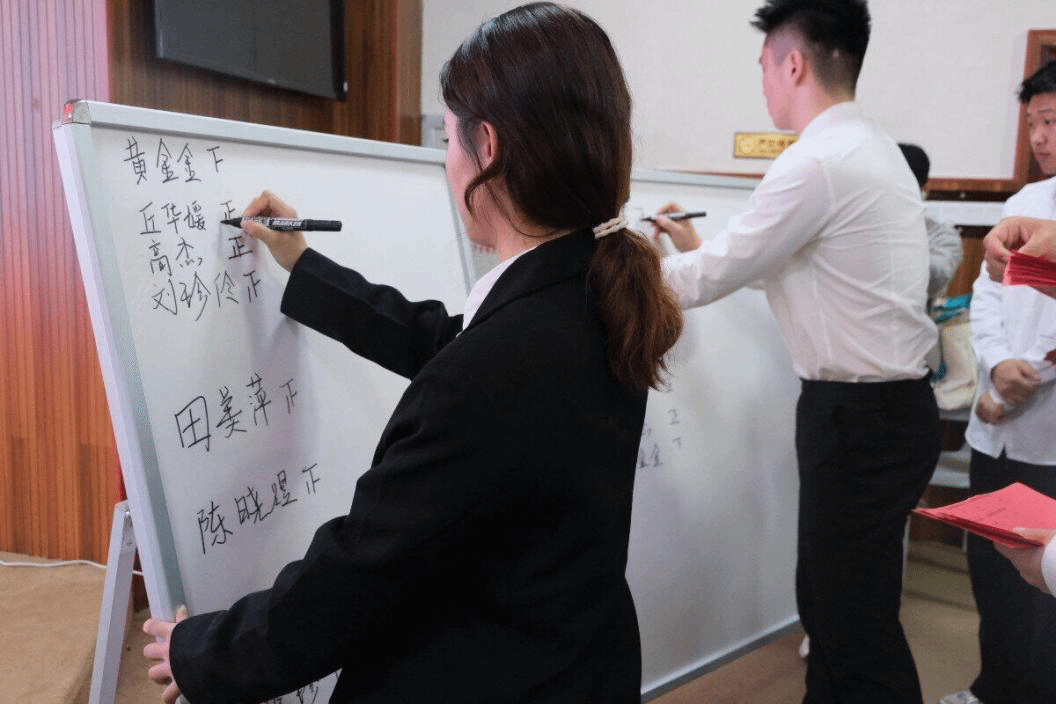 黄金金 下
丘华媛 正
高杰 正
刘珍伶 正
田美萍 正
陈晓煜 正
MARKER